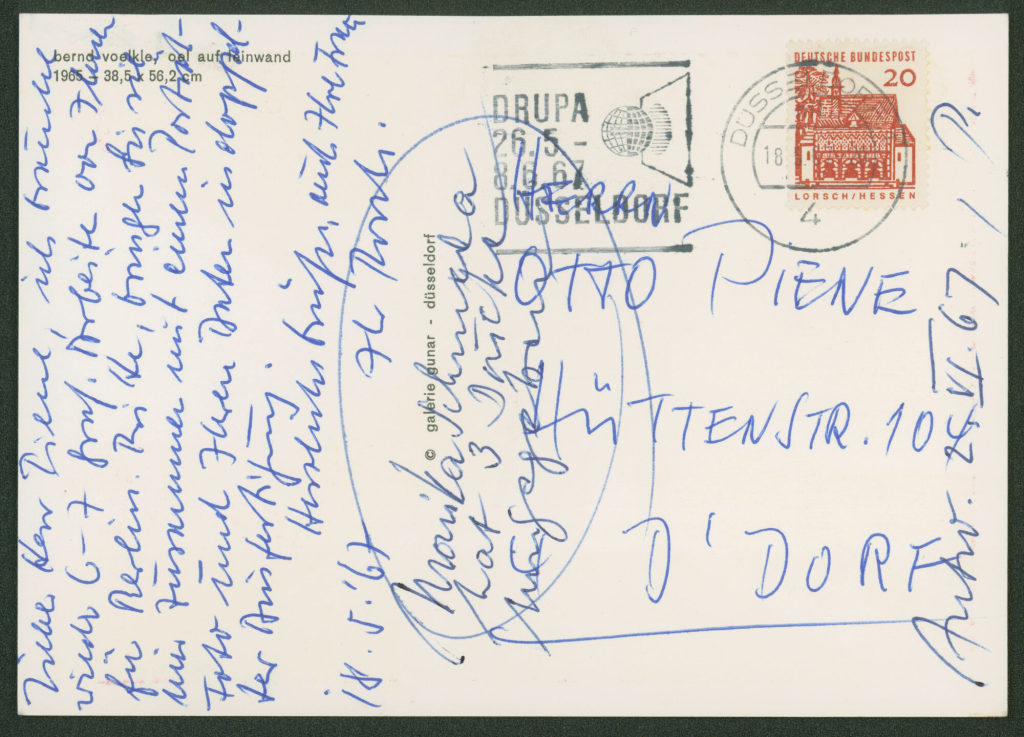 bernd voelkle, oel auf leinwand
1965 - 38,5 x 56,2 cm
Lieber Herr Piene, ich brauche
wieder 6-7 graf. Arbeiten von Ihnen
für Berlin. Bitte, bringen Sie sie
mir zusammen mit einem Portät-
Foto und Ihren Daten in doppel-
ter Ausfertigung.
Herzliche Grüße, auch Ihrer Frau
18.5.'67 Ihr
© galerie gunar - düsseldorf
Monika Schmela
hat 3 Drucke
DRUPA
26.5.-
8.6.67
DÜSSELDORF
DÜSSELDORF
18
4
DEUTSCHE BUNDESPOST
20
LORSCH/HESSEN
HERRN
OTTO PIENE
HÜTTENSTR. 104
D'DORF
Antw. 24.VI.67 / P.